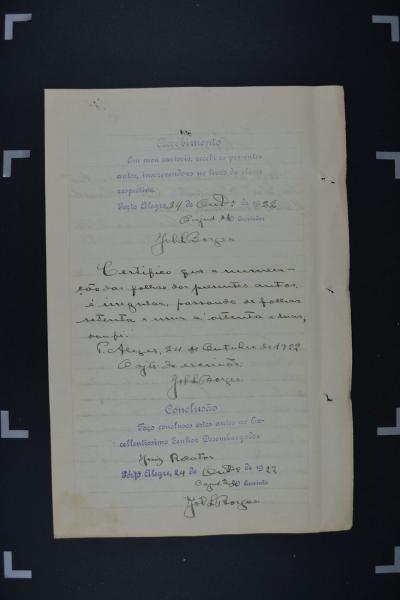 Recebimento
Em meu cartorio, recebi os presentes
autos, inscrevendo-os no livro da classe
respectiva.
Porto Alegre, 24 de Out.º de 1922
O Escrivão
Job L Borges
Certifico que a numera-
ção das folhas dos presentes autos,
é irregular, passando de folhas
setenta e uma a oitenta e duas,
dou fé.
P. Alegre, 24 de Outubro de 1922
O de escrivão
Job L Borges
Conclusão
Faço conclusos estes autos ao Ex-
cellentissimo Senhor Desembargador
Porto Alegre, 24 de Out.º de 1922
O Escrivão
Job L Borges